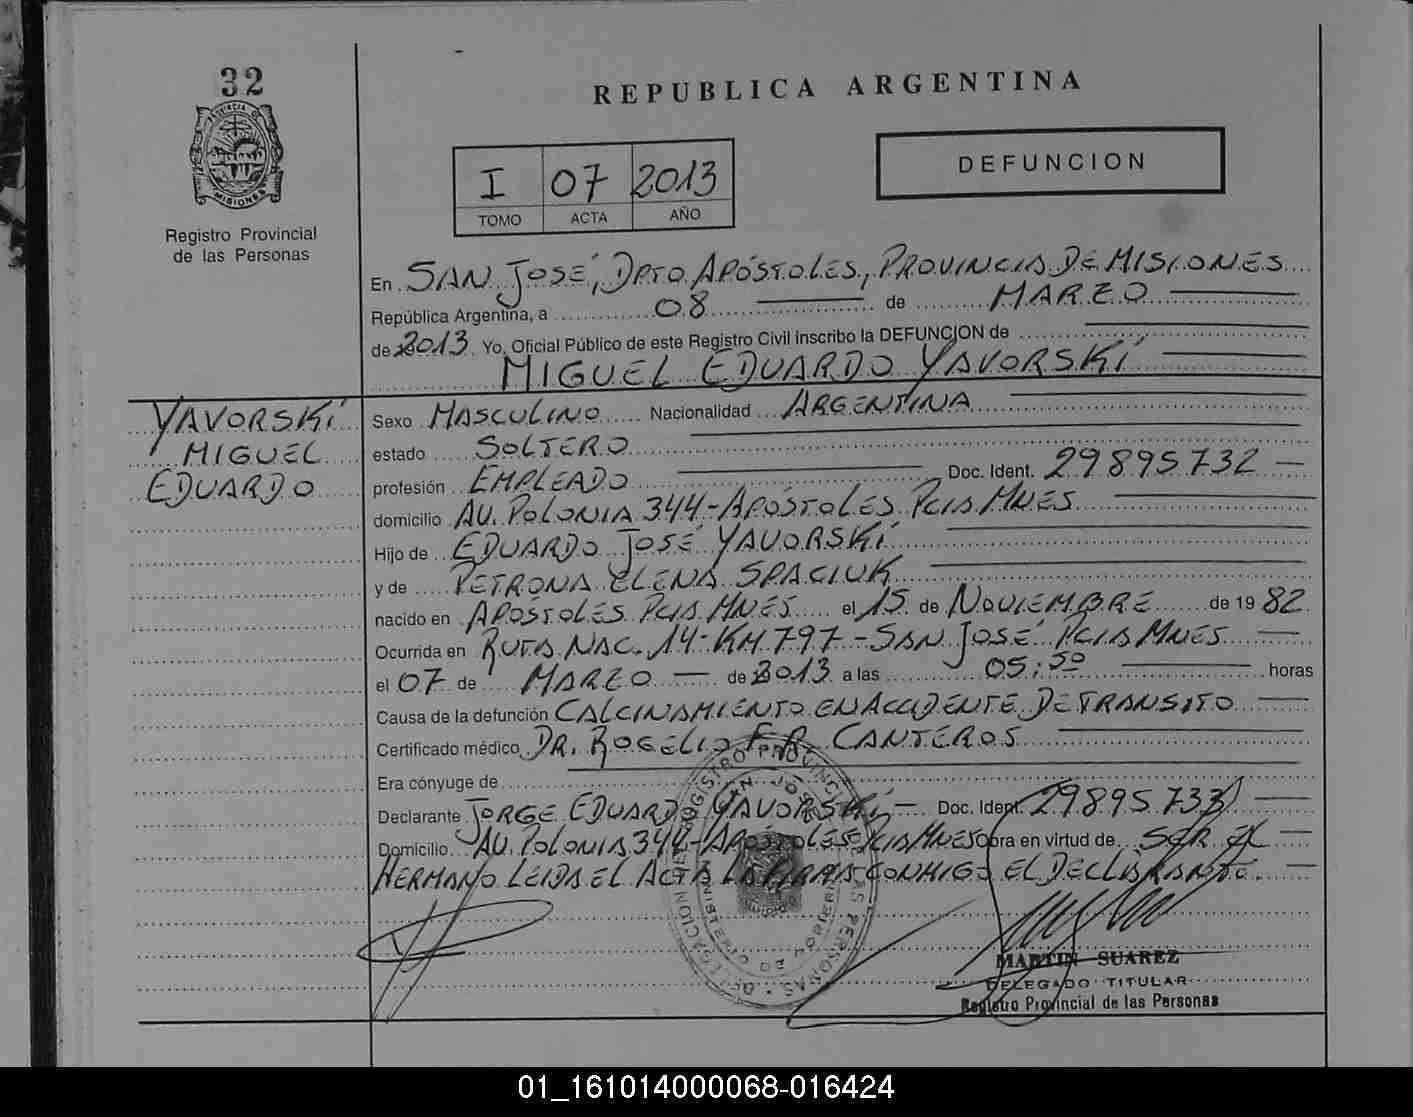 32
PROVINCIA D
MISIONES
Registro Provincial
de las Personas
REPUBLICA ARGENTINA
I 07 2013
TOMO ACTA AÑO
DEFUNCION
En SAN JOSÉ, DPTO APÓSTOLES, PROVINCIA DE MISIONES
República Argentina, a 08 de MARZO
de 2013. Yo, Oficial Público de este Registro Civil inscribo la DEFUNCION de
MIGUEL EDUARDO YAVORSKI
YAVORSKI
MIGUEL
EDUARDO
Sexo MASCULINO Nacionalidad ARGENTINA
estado SOLTERO
profesión EMPLEADO Doc. Ident. 29895732
domicilio AV. POLONIA 344-APÓSTOLES PCIA MNES
Hijo de EDUARDO JOSÉ YAVORSKI
y de PETRONA ELENA SPACIUK
nacido en APÓSTOLES PCIA MNES el 15 de NOVIEMBRE de 19 82
Ocurrida en RUTA NAC. 14-KM 797-SAN JOSÉ PCIA MNES
el 07 de MARZO de 2013 a las 05:50 horas
Causa de la defunción CALCINAMIENTO EN ACCIDENTE DE TRANSITO
Certificado médico DR. ROGELIO F.R. CANTEROS
Era cónyuge de
Declarante JORGE EDUARDO YAVORSKI Doc. Ident. 29895733
Domicilio AV. POLONIA 344-APÓSTOLES PCIA MNES Obra en virtud de SER EL
HERMANO LEIDA EL ACTA LA FIRMA CONMIGO EL DECLARANTE.
REGISTRO PROVINCIAL DE LAS PERSONAS
DELEGACION
SAN JOSE
MINISTERIO DE GOBIERNO
MARTIN SUAREZ
DELEGADO TITULAR
Registro Provincial de las Personas
01_161014000068-016424